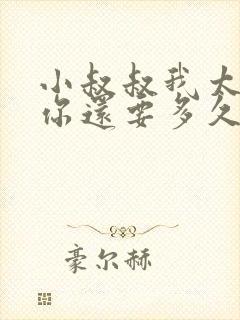 小叔叔我太
你還要多久
豪尔赫